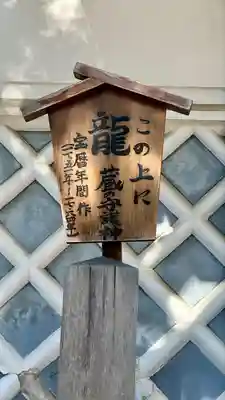 この上に
龍 蔵寺沫神
宝暦年間作
(一七五一年～一七六四年)